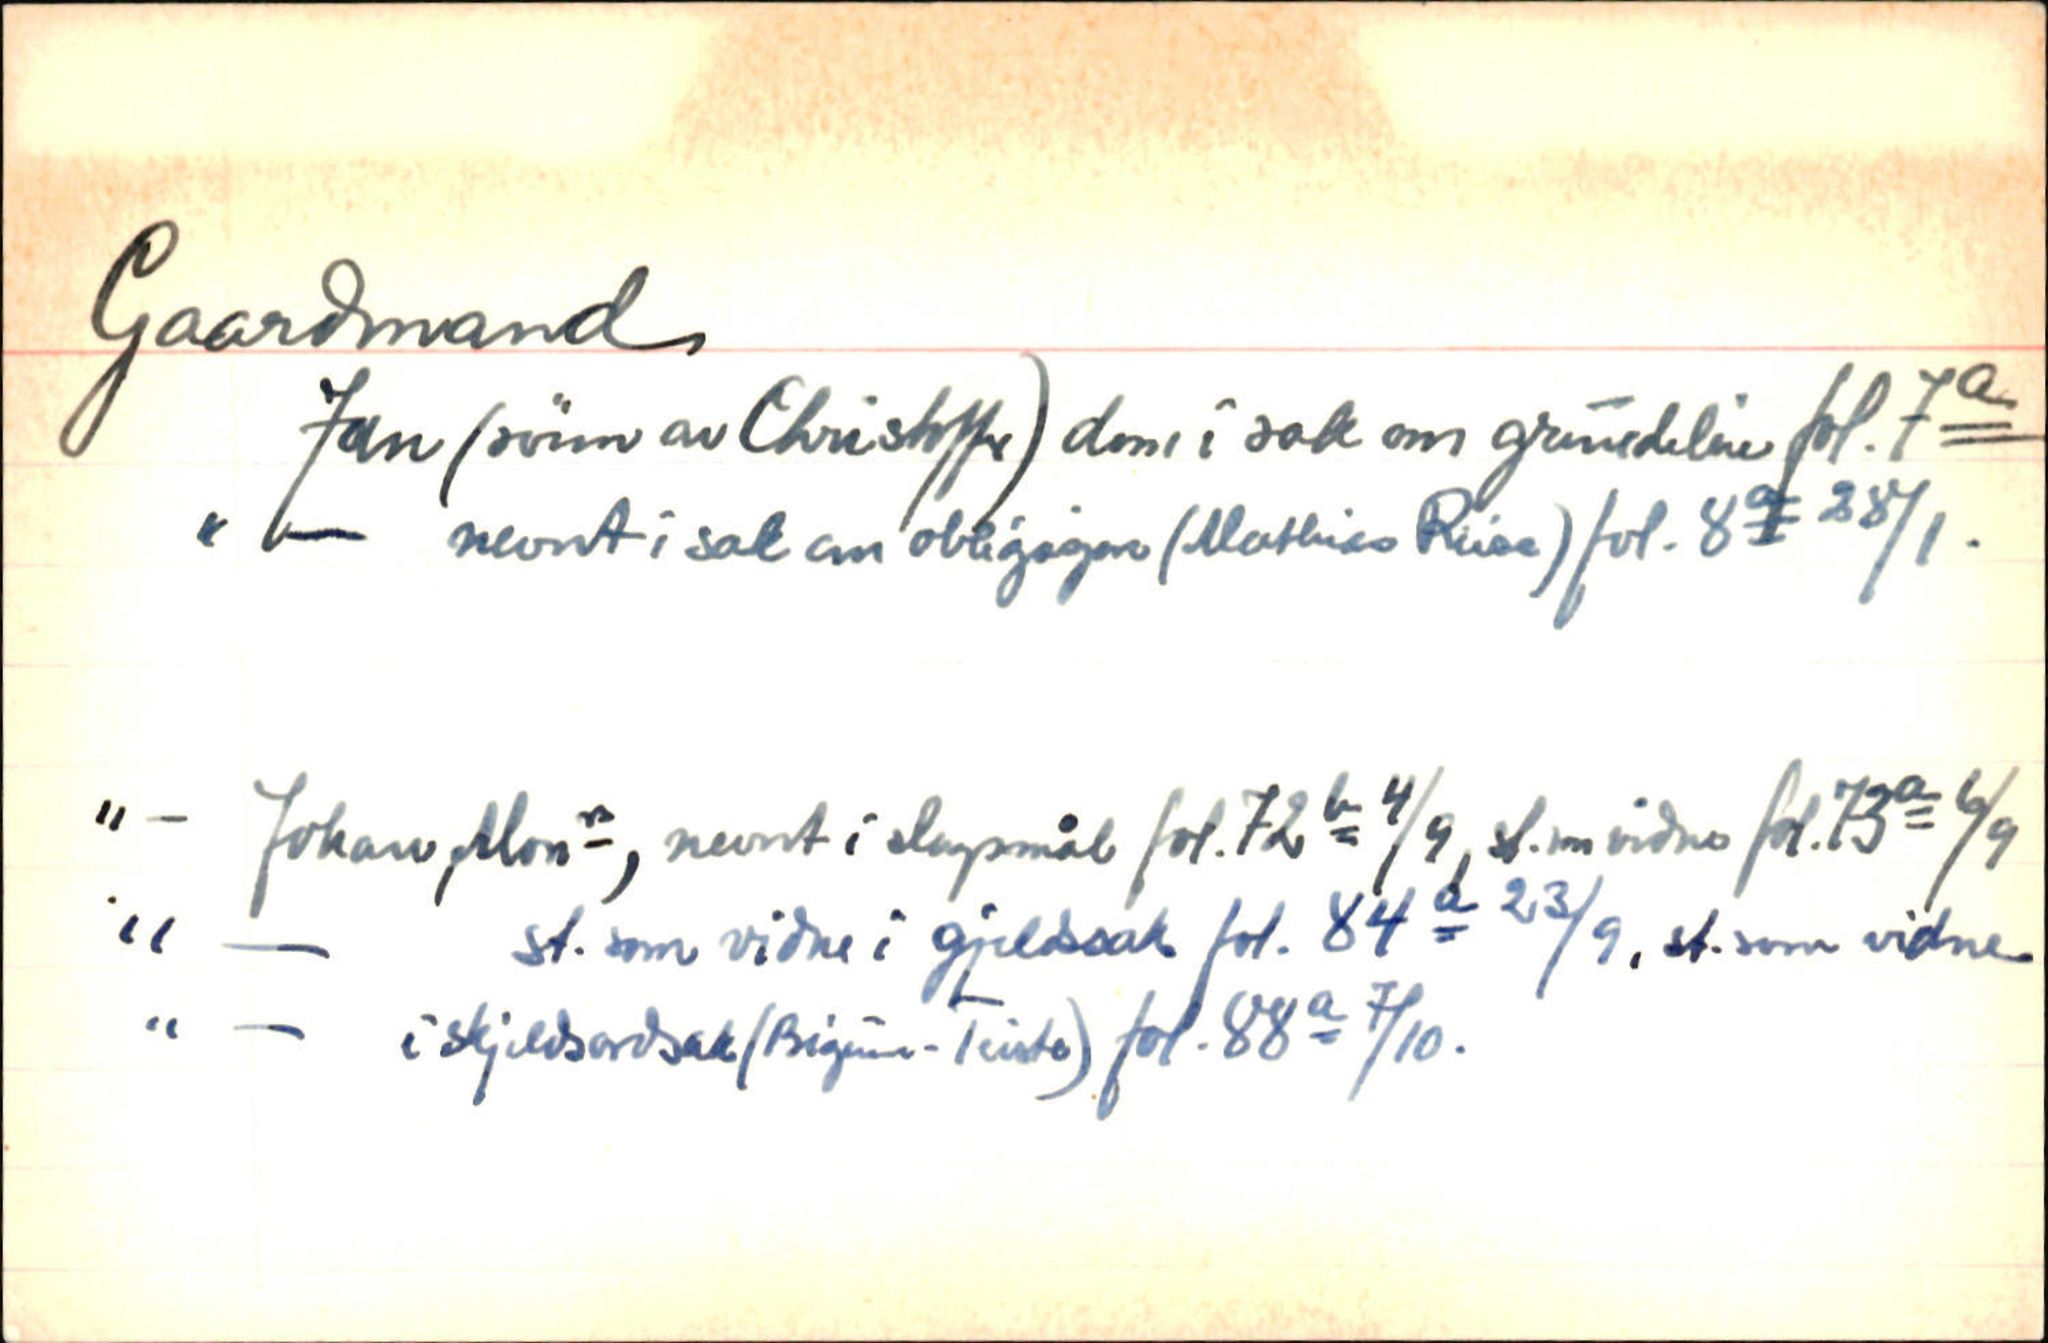 Gaardmand
Jan (sönn av Christoffer) dom i sak om fol. 7a
" — nevnt i sak om (Mathias Riise) fol. 8a 28/1.
" – Johan Monsn, nevnt i slagsmål fol. 72b 4/9, st. som vidne fol. 73a 6/9
" — st. som vidne i gjeldssak fol. 84a 23/9, st. som vidne
" — i skjeldsordsak ( - Teiste) fol. 88a 7/10.